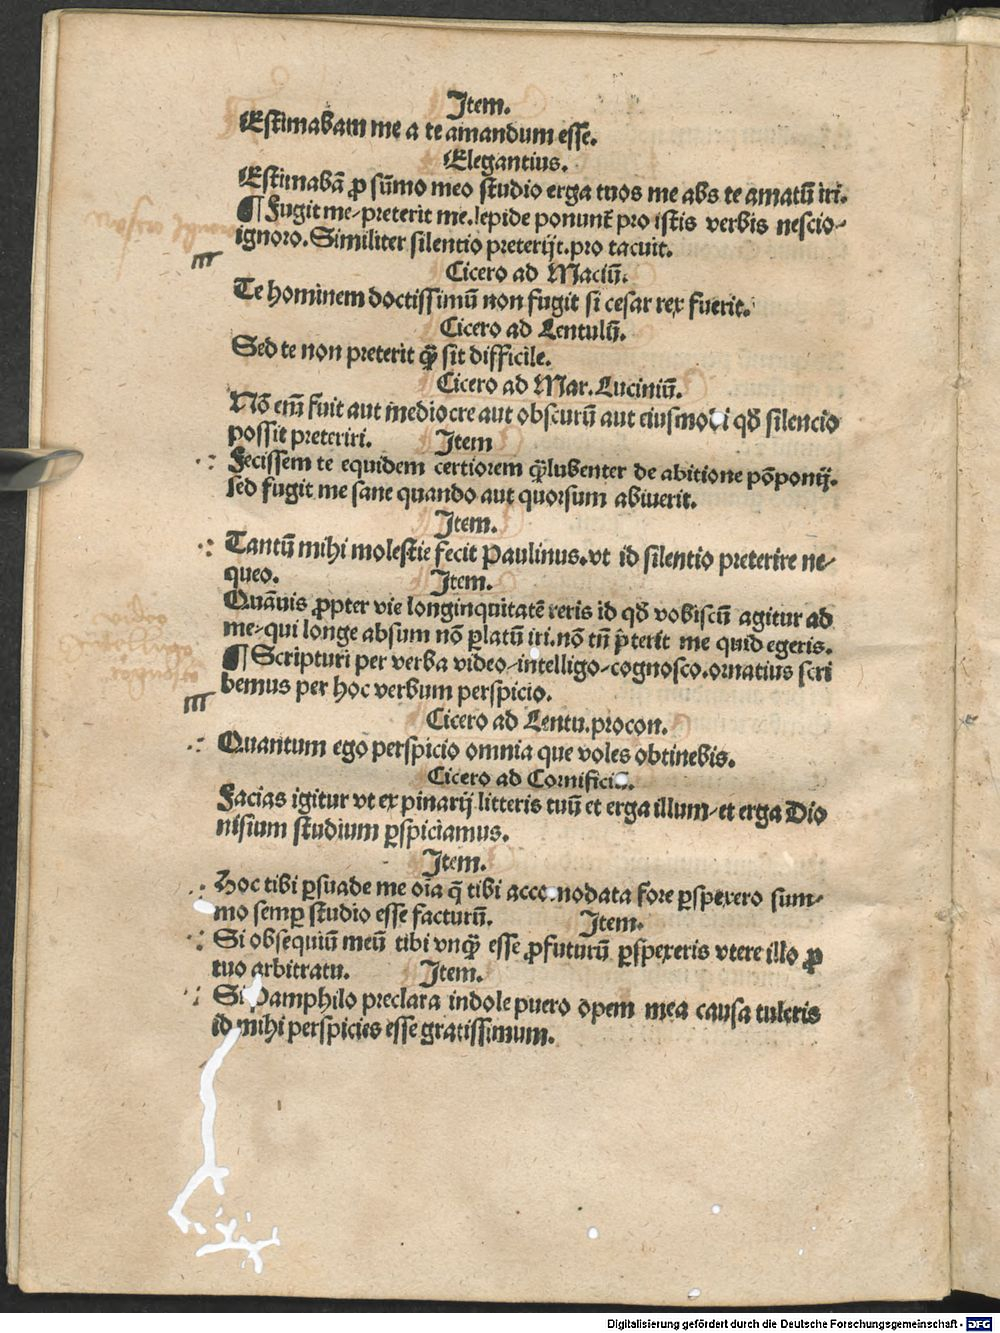 Item.
Estimabam me a te amandum esse.
Elegantius.
Estimabā ꝓ sūmo meo studio erga tuos me abs te amatū iri.
¶ Fugit me/preterit me.lepide ponunt̄ pro istis verbis nescio/
ignoro. Similiter silentio preterijt.pro tacuit.
Cicero ad Maciū.
Te hominem doctissimū non fugit si cesar rex fuerit.
Cicero ad Lentulū.
Sed te non preterit q̄ȝ sit difficile.
Cicero ad Mar. Luciniū.
Nō em̄ fuit aut mediocre aut obscurū aut eiusmodi qď silencio
possit preteriri. Item
Fecissem te equidem certiorem q̄ȝlubenter de abitione pōponij.
sed fugit me sane quando aut quorsum abiuerit.
Item.
Tantū mihi molestie fecit Paulinus.vt id silentio preterire ne/
queo. Item.
Quāuis ꝓpter vie longinquitatē reris id qď vobiscū agitur ad
me/qui longe absum nō ꝑlatū iri.nō tn̄ p̄terit me quid egeris.
¶ Scripturi per verba video/intelligo/cognosco.ornatius scri
bemus per hoc verbum perspicio.
Cicero ad Lentu.procon.
Quantum ego perspicio omnia que voles obtinebis.
Cicero ad Cornifici
Facias igitur vt ex pinarij litteris tuū et erga illum/et erga Dio
nisium studium ꝑspiciamus.
Item.
Hoc tibi ꝑsuade me oīa q̄ tibi accomodata fore ꝑspexero sum/
mo semꝑ studio esse facturū. Item.
Si obsequiū meū tibi vnq̄ȝ esse ꝓfuturū ꝑspexeris vtere illo ꝓ
tuo arbitratu. Item.
Si Pamphilo preclara indole puero opem mea causa tuleris
id mihi perspicies esse gratissimum.
Digitalisierung gefördert durch die Deutsche Forschungsgemeinschaft - DFG